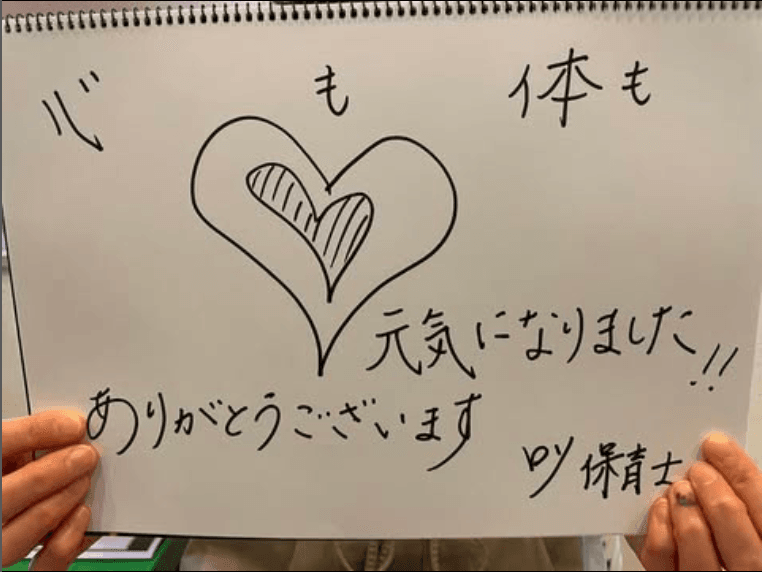 心も体も
元気になりました!!
ありがとうございます
by 保育士